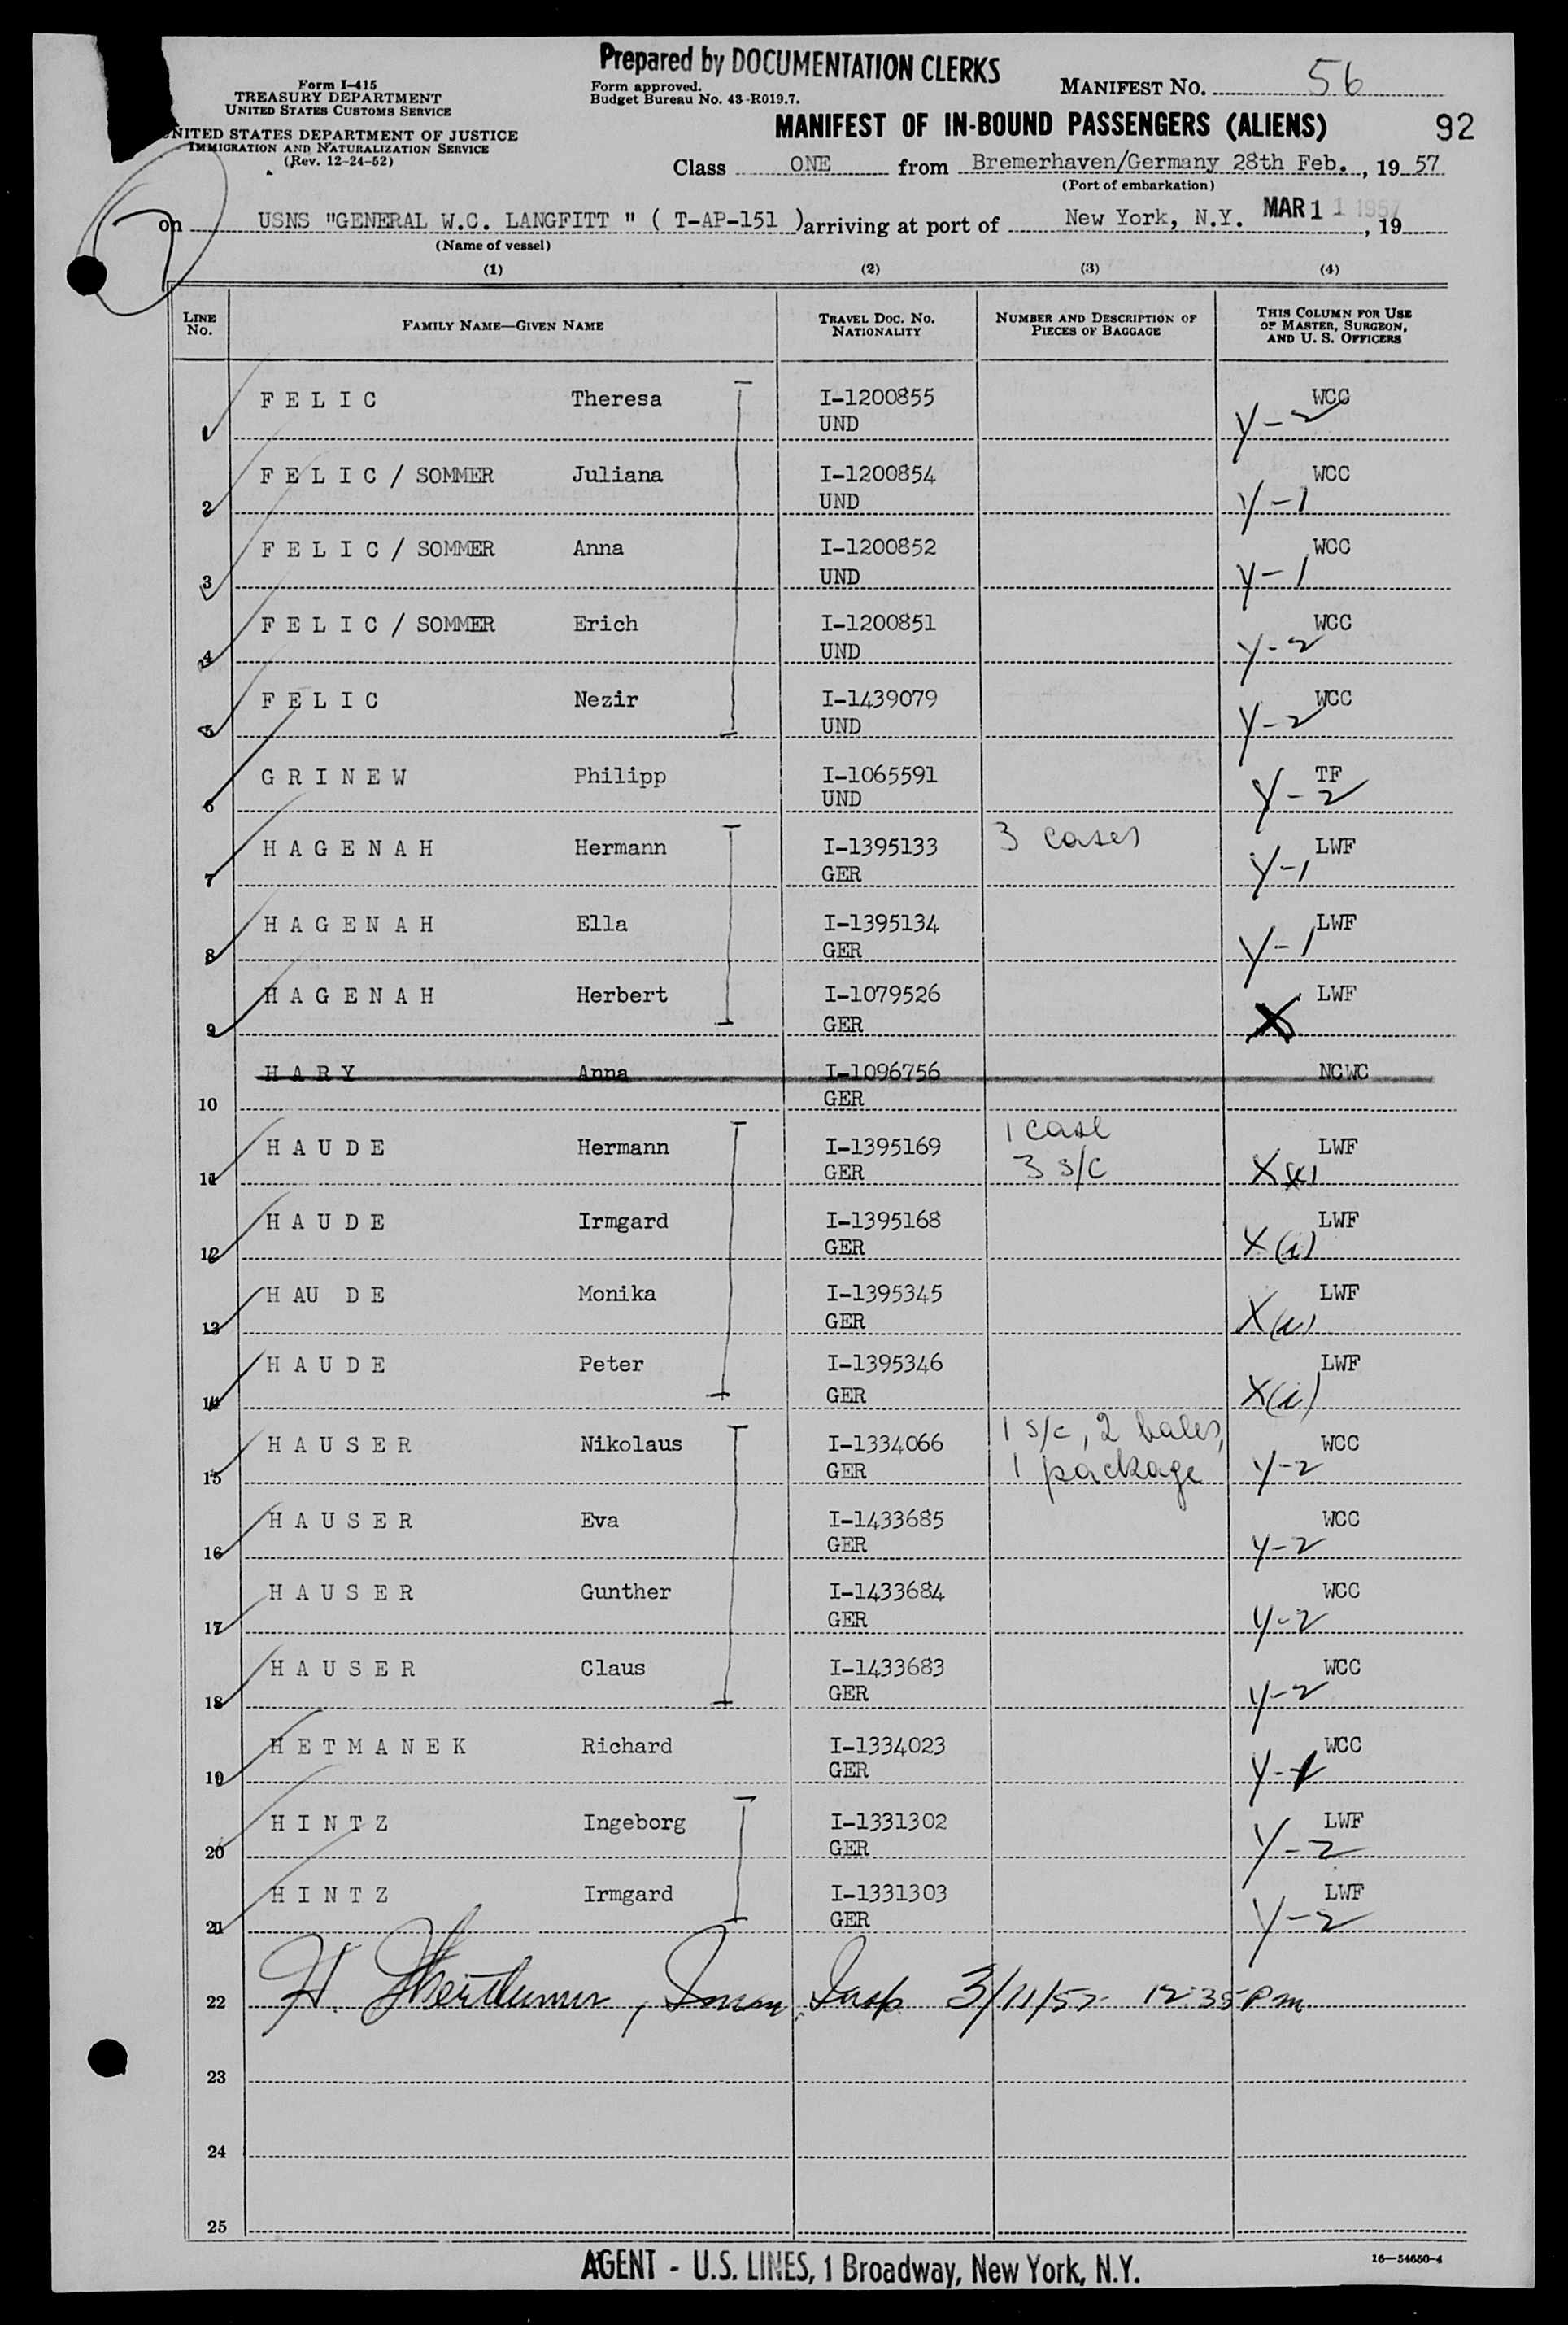 Prepared by DOCUMENTATION CLERKS
Form I-415
TREASURY DEPARTMENT
UNITED STATES CUSTOMS SERVICE
UNITED STATES DEPARTMENT OF JUSTICE
IMMIGRATION AND NATURALIZATION SERVICE
(Rev. 12-24-52)
Form approved.
Budget Bureau No. 43-R019.7.
MANIFEST NO. 56
MANIFEST OF IN-BOUND PASSENGERS (ALIENS) 92
Class ONE from Bremerhaven/Germany 28th Feb., 19 57
(Port of embarkation)
on USNS "GENERAL W.C. LANGFITT " ( T-AP-151 ) arriving at port of New York, N.Y. MAR 1 1 1957, 19
(Name of vessel)
(1) (2) (3) (4)
LINE NO. FAMILY NAME—GIVEN NAME TRAVEL DOC. NO. NATIONALITY NUMBER AND DESCRIPTION OF PIECES OF BAGGAGE THIS COLUMN FOR USE OF MASTER, SURGEON, AND U. S. OFFICERS
1 F E L I C Theresa I-1200855 UND WCC Y-2
2 F E L I C / SOMMER Juliana I-1200854 UND WCC Y-1
3 F E L I C / SOMMER Anna I-1200852 UND WCC Y-1
4 F E L I C / SOMMER Erich I-1200851 UND WCC Y-2
5 F E L I C Nezir I-1439079 UND WCC Y-2
6 G R I N E W Philipp I-1065591 UND TF Y-2
7 H A G E N A H Hermann I-1395133 GER 3 cases LWF Y-1
8 H A G E N A H Ella I-1395134 GER LWF Y-1
9 H A G E N A H Herbert I-1079526 GER LWF X
10 H A R Y Anna I-1096756 GER NCWC
11 H A U D E Hermann I-1395169 GER 1 case 3 s/c LWF X
12 H A U D E Irmgard I-1395168 GER LWF X(i)
13 H AU D E Monika I-1395345 GER LWF X(i)
14 H A U D E Peter I-1395346 GER LWF X(i)
15 H A U S E R Nikolaus I-1334066 GER 1 s/c, 2 bales, 1 package WCC Y-2
16 H A U S E R Eva I-1433685 GER WCC Y-2
17 H A U S E R Gunther I-1433684 GER WCC Y-2
18 H A U S E R Claus I-1433683 GER WCC Y-2
19 H E T M A N E K Richard I-1334023 GER WCC Y-1
20 H I N T Z Ingeborg I-1331302 GER LWF Y-2
21 H I N T Z Irmgard I-1331303 GER LWF Y-2
22 H. , Imm. Insp 3/11/57 12:35 PM
23
24
25
AGENT - U.S. LINES, 1 Broadway, New York, N.Y.
16—54650-4